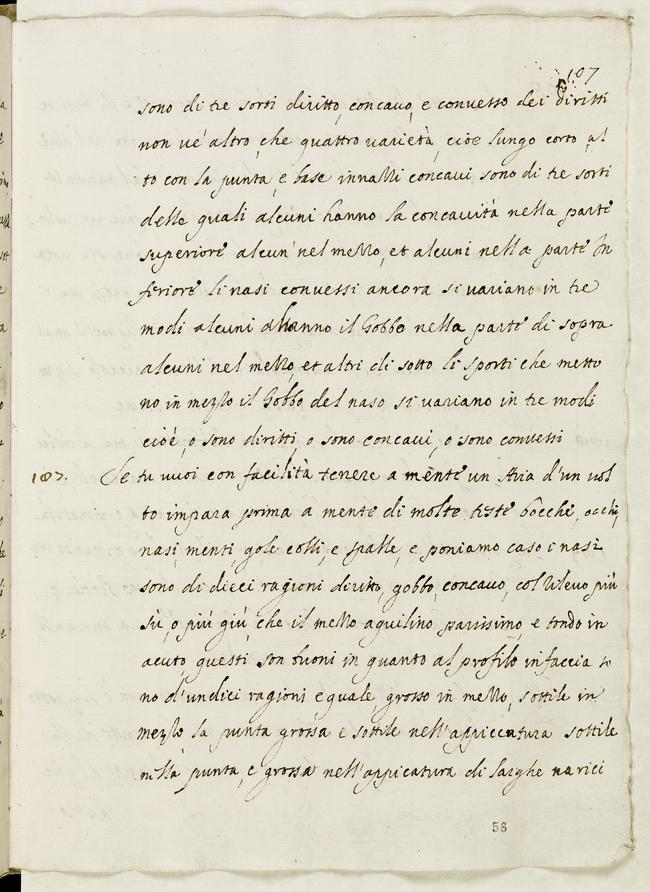 107
sono di tre sorti diritto, concauo, e conuesso dei diritti
non ue' altro, che quattro varietà, cioè lungo corto, al
to con la punta, e base innalti concaui sono di tre sorti
delle quali alcuni hanno la concauità nella parte
superiore alcun' nel mezzo, et alcuni nella parte in
feriore li nasi conuessi ancora si uariano in tre
modi alcuni hanno il Gobbo nella parte di sopra
alcuni nel mezzo, et altri di sotto li sporti che metto
no in mezzo il Gobbo del naso si uariano in tre modi
cioè, o sono diritti, o sono concaui, o sono conuessi
187. Se tu uuoi con facilità tenere a mente un Aria d'un uol
to impara prima a mente di molte teste bocche, occhi,
nasi, menti, gole colli, e spalle, e poniamo caso i nasi
sono di dieci ragioni diritto, gobbo, concauo, col rileuo più
sù, o più giù, che il mezzo aquilino, parissimo, e tondo in
acuto, questi son buoni in quanto al profilo in faccia so
no d'undici ragioni equale, grosso in mezzo, sottile in
mezzo la punta grossa e sottile nell'appiccatura sottile
nella punta, e grossa nell'appicatura di larghe narici
56